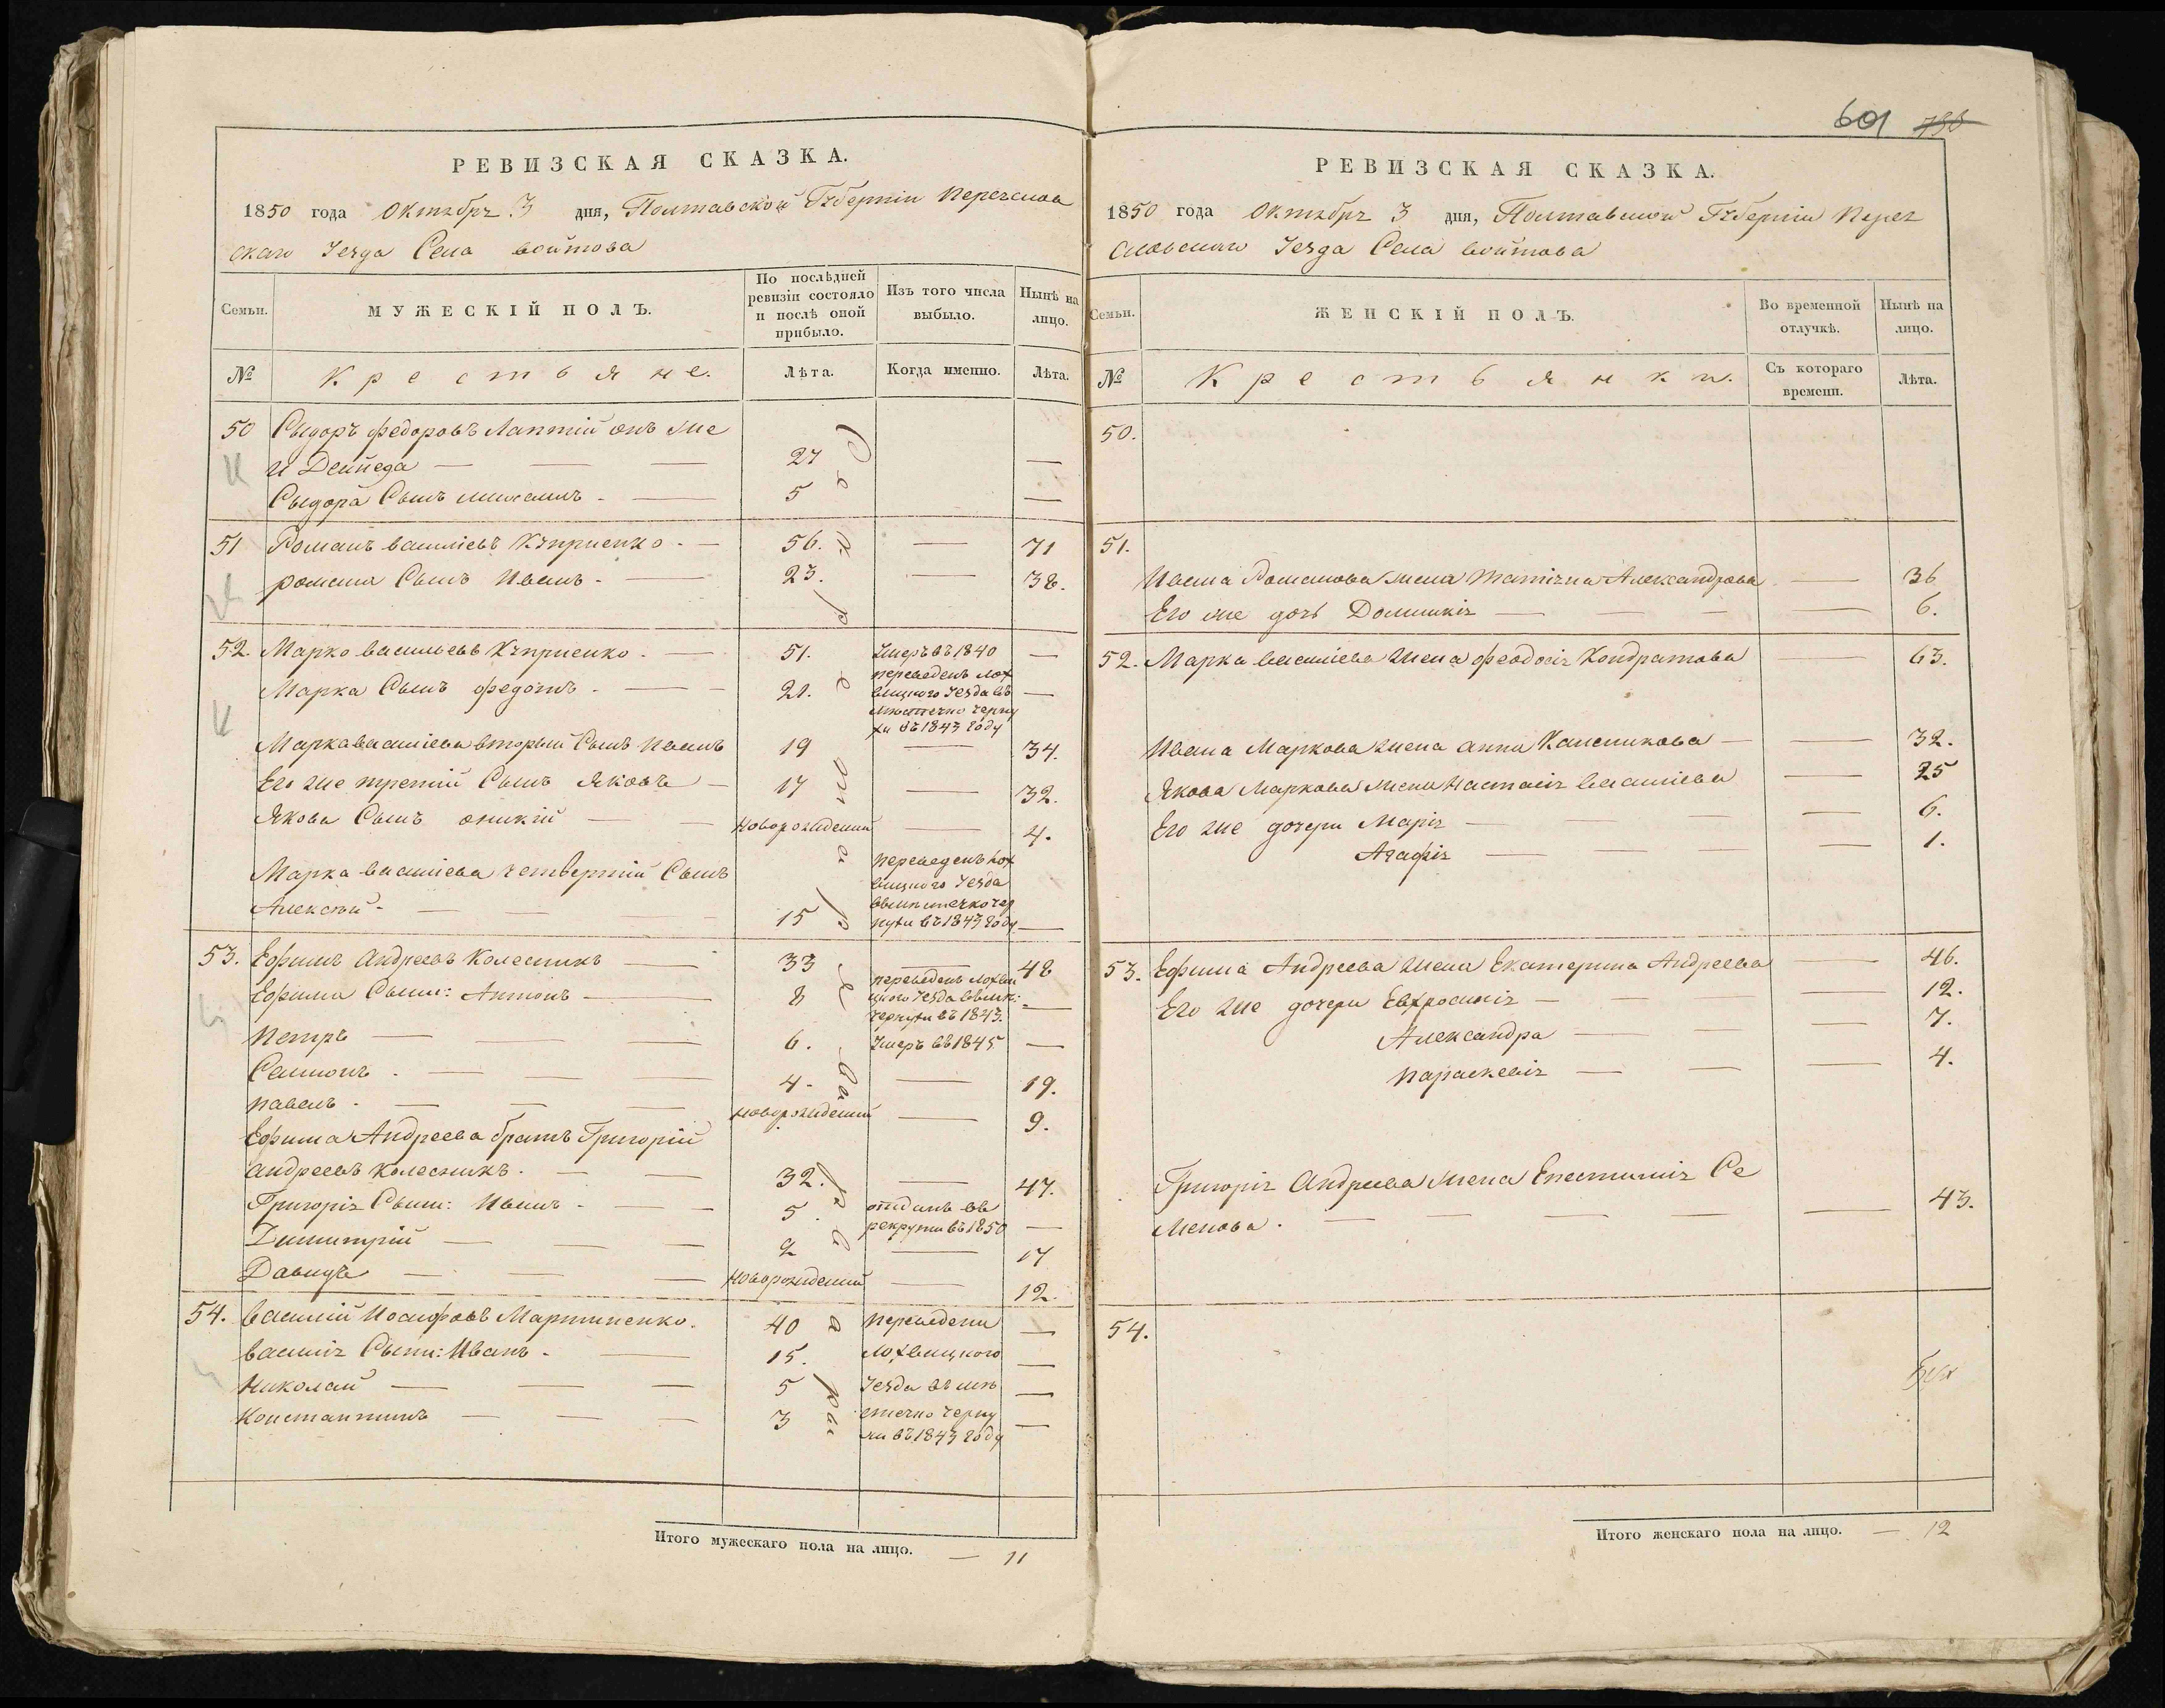 601 798
РЕВИЗСКАЯ СКАЗКА.
1850 года Октября 3 дня, Полтавской Губерніи Переяслов
скаго Уезда Села войтова
Семьи.
МУЖЕСКІЙ ПОЛЪ.
По послѣдней ревизіи состояло и послѣ оной прибыло.
Изъ того числа выбыло.
Нынѣ на лицо.
№
Крестьяне.
Лѣта.
Когда именно.
Лѣта.
50 Сыдоръ федоровъ Лаптій онъ же
и Дейнеда — 27 —
Сыдора Сынъ михаилъ - 5 —
51 Романъ василіевъ Купріенко - 56. — 71
романа Сынъ Иванъ - 23. — 38.
52. Марко васильевъ Купріенко - 51. Умеръ въ 1840 —
Марка Сынъ федотъ - 21. переведенъ лох
вицкого Уезда въ —
местечко черну
хи въ 1843 году
Марка василіева вторый Сынъ Иванъ 19 — 34.
Его же третій Сынъ Яковъ — 17 — 32.
Якова Сынъ оникій — Новорожденый — 4.
Марка василіева четвертій Сынъ переведенъ лох
вицкого Уезда
Алексѣй - 15 въ местечко чер
нухи въ 1843 году —
53. Ефимъ Андреевъ Колесникъ — 33 — 48
Ефима Сыны: Антонъ — 8 переведенъ лохви
цкого Уезда въ мѣс: —
чернухи въ 1843.
Петръ — 6. Умеръ въ 1845 —
Самионъ - 4. — 19.
павелъ - новорожденый — 9.
Ефима Андреева братъ Григорій
андреевъ колесникъ - 32. — 47.
Григорія Сыны: Иванъ - 5. отданъ въ
рекруты въ 1850 —
Димитрій — 2 — 17
Давидъ — новорожденый — 12.
54. василій Иосифовъ Мартиненко. 40 переведены —
василія Сыны: Иванъ - 15. лохвицкого —
Николай — 5 Уезда въ мѣ —
Константинъ — 3 стечко черну —
хи въ 1843 году
Итого мужескаго пола на лицо. — 11
РЕВИЗСКАЯ СКАЗКА.
1850 года Октября 3 дня, Полтавской Губерніи Перея
словского Уезда Села войтова
Семьи.
ЖЕНСКІЙ ПОЛЪ.
Во временной отлучкѣ.
Нынѣ на лицо.
№
Крестьянки.
Съ котораго времени.
Лѣта.
50.
51.
Ивана Романова жена Татіяна Александрова — 36
Его же дочь Домникія — 6.
52. Марка василіева жена феодосія Кондратова — 63.
Ивана Маркова жена анна Калсникова — 32.
Якова Маркова жена Настасія василіева — 25
Его же дочери Марія — 6.
Агафія — 1.
53. Ефима Андреева жена Екатерина Андреева — 46.
Его же дочери Евфросинія — 12.
Александра — 7.
параскевія — 4.
Григорія Андреева жена Епестимія Се
менова. — 43.
54.
Итого женскаго пола на лицо. — 12